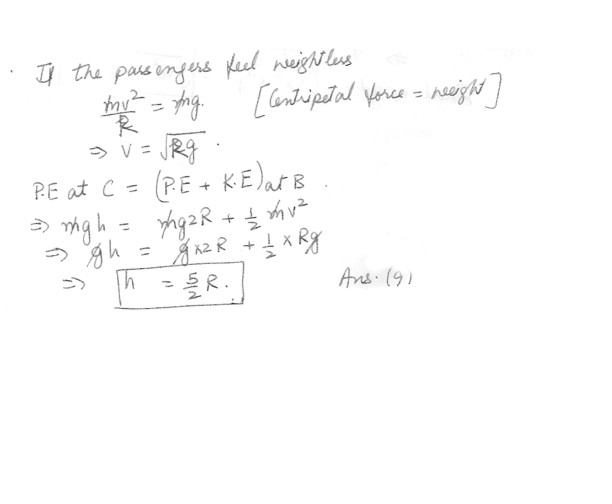 If the passengers feel weightless
mv²/R = mg. [Centripetal force = weight]
⇒ V = √Rg .
P.E at C = (P.E + K.E) at B .
⇒ mgh = mg2R + 1/2 mv²
⇒ gh = g×2R + 1/2 × Rg
⇒ h = 5/2 R. Ans. (9)